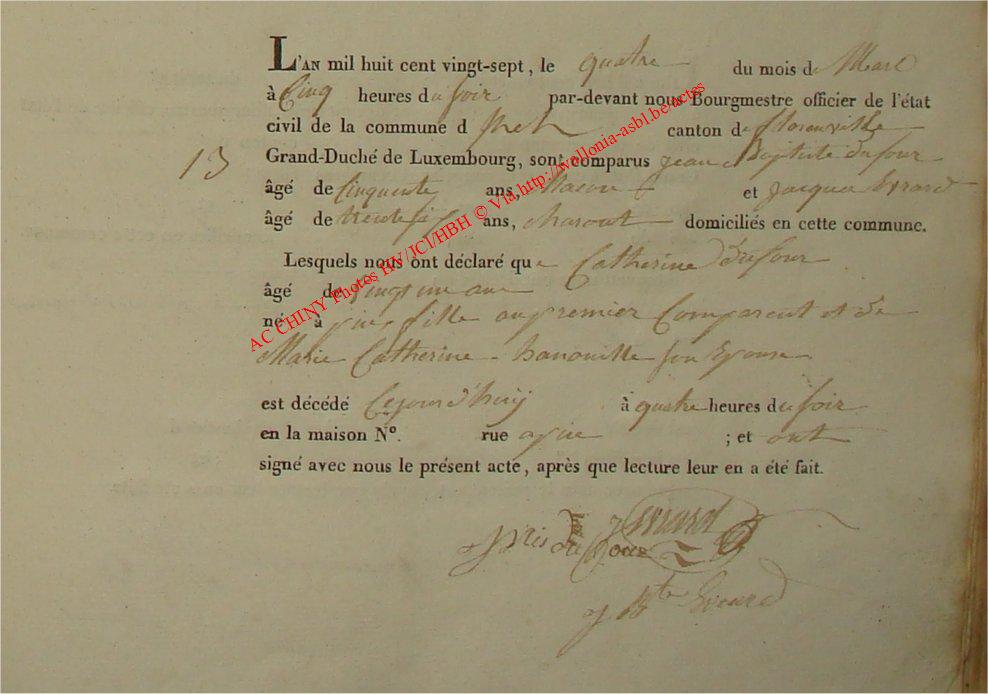 L'AN mil huit cent vingt-sept, le quatre du mois de Mars
à Cinq heures du soir par-devant nous Bourgmestre officier de l'état
civil de la commune d canton de florenville
13
Grand-Duché de Luxembourg, sont comparus jean Baptiste dufour
âgé de Cinquente ans, Macon et jacques Evrard
âgé de trente six ans, domiciliés en cette commune.
Lesquels nous ont déclaré que Catherine dufour
âgé de vingt un ans
né à fille au premier Comparent et de
Marie Catherine hanouille son Epouse
est décédé Cejourd'huy à quatre heures du soir
en la maison N°. rue ; et ont
signé avec nous le présent acte, après que lecture leur en a été fait.
j Evrard
j Bte Evrard
AC CHINY Photos BV/JCl/HBH © Via http://wallonia-asbl.be/actes